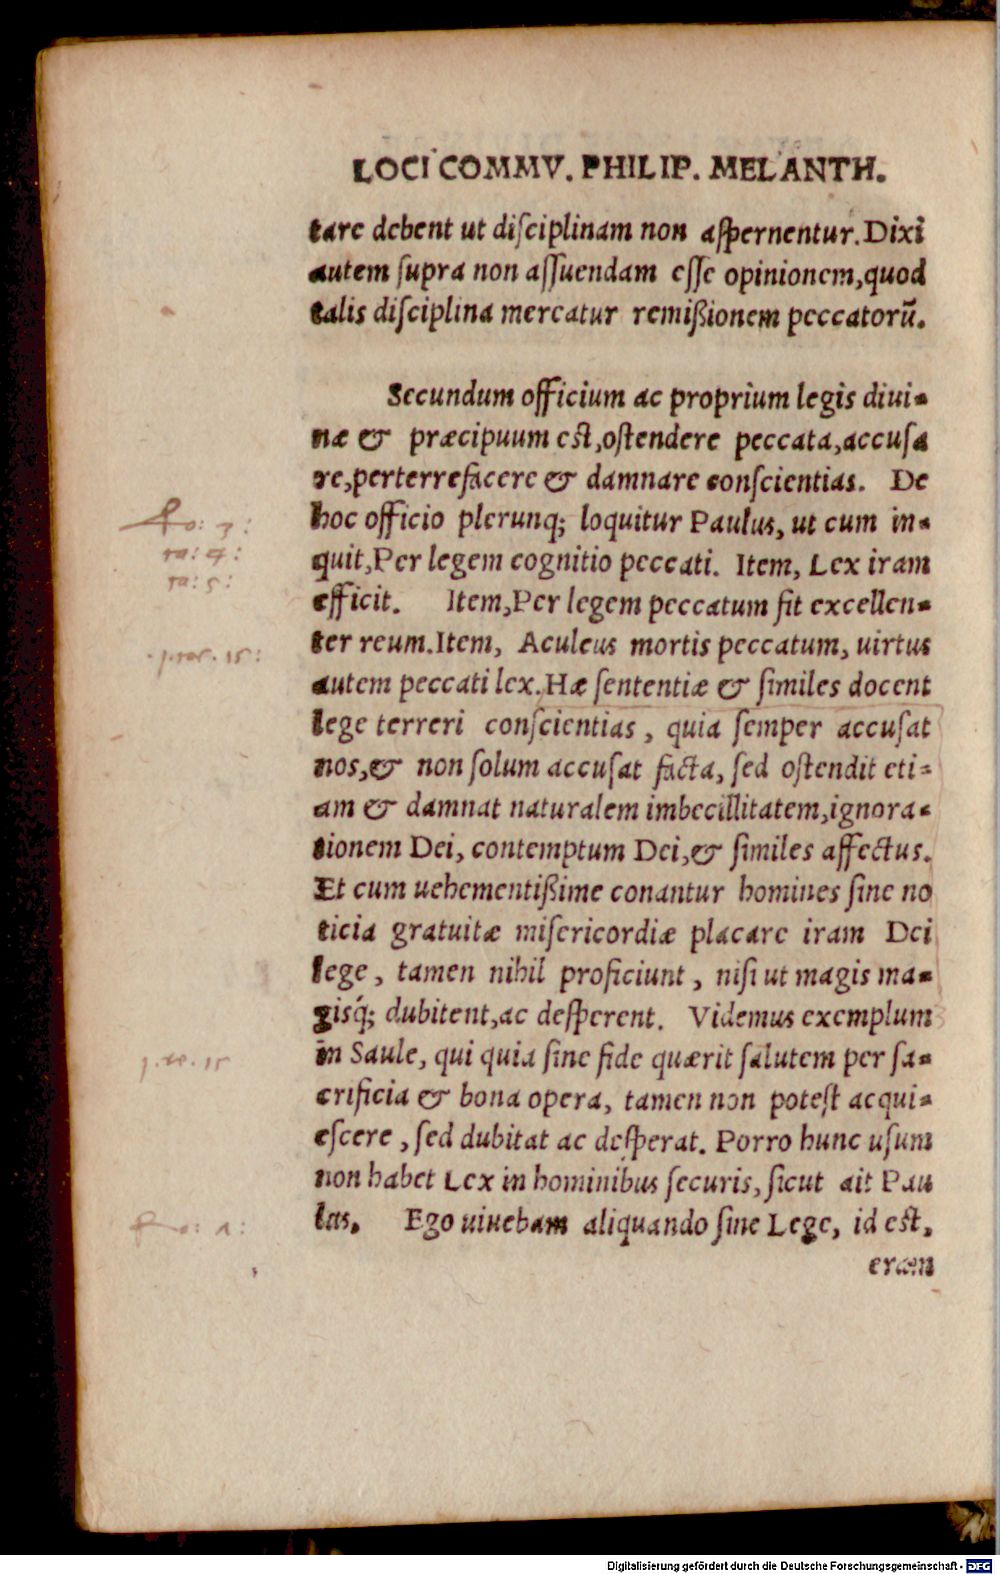 LOCI COMMV. PHILIP. MELANTH.
tare debent ut diſciplinam non aſpernentur. Dixi
autem ſupra non aſſuendam eſſe opinionem, quod
talis diſciplina mereatur remißionem peccatorū.
Secundum officium ac proprium legis diui-
næ & præcipuum eſt, oſtendere peccata, accuſa
re, perterrefacere & damnare conſcientias. De
hoc officio plerunq; loquitur Paulus, ut cum in-
quit, Per legem cognitio peccati. Item, Lex iram
efficit. Item, Per legem peccatum fit excellen-
ter reum. Item, Aculeus mortis peccatum, uirtus
autem peccati lex. Hæ ſententiæ & ſimiles docent
lege terreri conſcientias, quia ſemper accuſat
nos, & non ſolum accuſat facta, ſed oſtendit eti-
am & damnat naturalem imbecillitatem, ignora-
tionem Dei, contemptum Dei, & ſimiles affectus.
Et cum uehementißime conantur homines ſine no
ticia gratuitæ miſericordiæ placare iram Dei
lege, tamen nihil proficiunt, niſi ut magis ma-
gisq́; dubitent, ac deſperent. Videmus exemplum
in Saule, qui quia ſine fide quærit ſalutem per ſa-
crificia & bona opera, tamen non poteſt acqui-
eſcere, ſed dubitat ac deſperat. Porro hunc uſum
non habet Lex in hominibus ſecuris, ſicut ait Pau
lus. Ego uiuebam aliquando ſine Lege, id eſt,
eram
Ro: 3:
ra: 4:
ra: 5:
1. cor. 15:
1. re. 15
Ro:
Digitalisierung gefördert durch die Deutsche Forschungsgemeinschaft - DFG